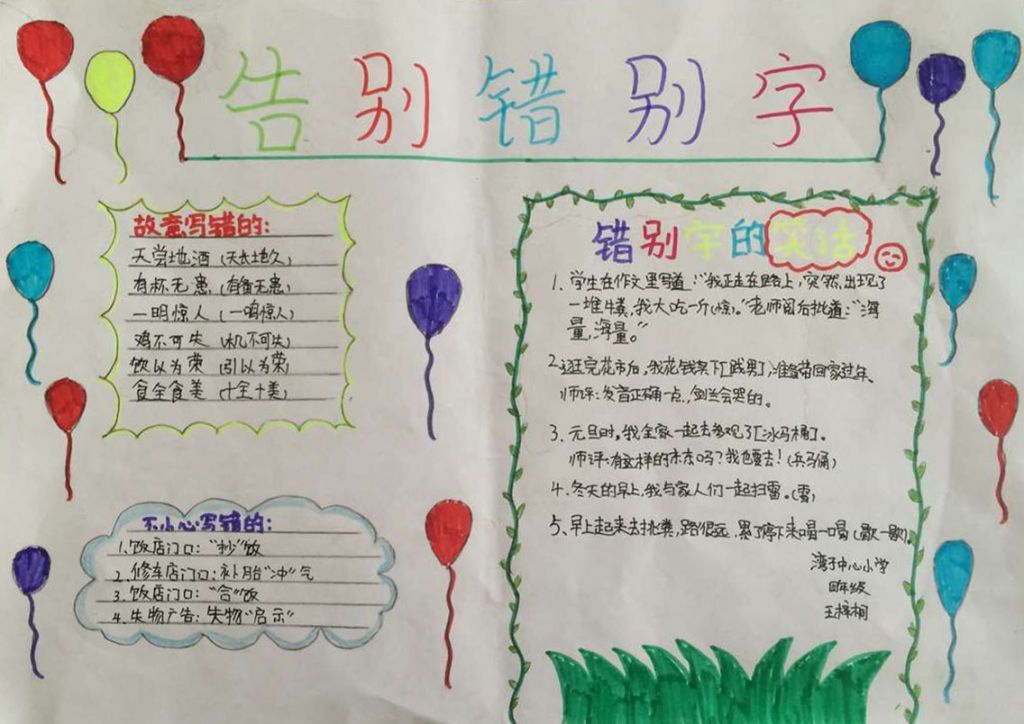 告别错别字
故意写错的:
天尝地酒 (天长地久)
有杯无患 (有备无患)
一明惊人 (一鸣惊人)
鸡不可失 (机不可失)
饮以为荣 (引以为荣)
食全食美 (十全十美)
不小心写错的:
1.饭店门口:"抄"饭
2.修车店门口:补胎"冲"气
3.饭店门口:"合"饭
4.失物广告:失物"启示"
错别字的笑话
1、学生在作文里写道:"我正走在路上,突然,出现了
一堆牛粪,我大吃一斤(惊)。"老师阅后批道:"海
量,海量。"
2、逛完花市后,我花钱买下[贱男]准备带回家过年。
师评:发音正确一点,剑兰会哭的。
3、元旦时,我全家一起去参观了[冰马桶]。
师评:有这样的木木吗?我也要去!(兵马俑)
4、冬天的早上,我与家人们一起扫雷。(雪)
5、早上起来去挑粪,路很远,累了停下来喝一喝(歇一歇)。
湾子中心小学
四年级
王梓桐